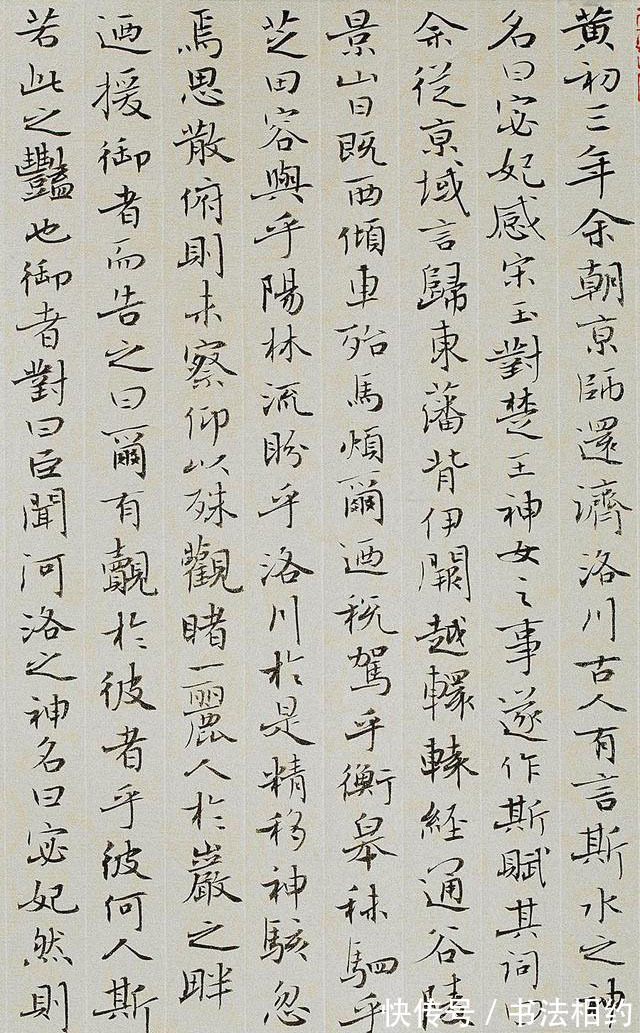 黄初三年余朝京師還濟洛川古人有言斯水之神
名曰宓妃感宋玉對楚王神女之事遂作斯賦其詞曰
余從京域言歸東藩背伊闕越轘轅經通谷陵
景山日既西傾車殆馬煩爾迺稅駕乎衡皋秣駟乎
芝田容與乎陽林流盼乎洛川於是精移神駭忽
焉思散俯則未察仰以殊觀睹一麗人於巖之畔
迺援御者而告之曰爾有覿於彼者乎彼何人斯
若此之豔也御者對曰臣聞河洛之神名曰宓妃然則
快传号/书法相约